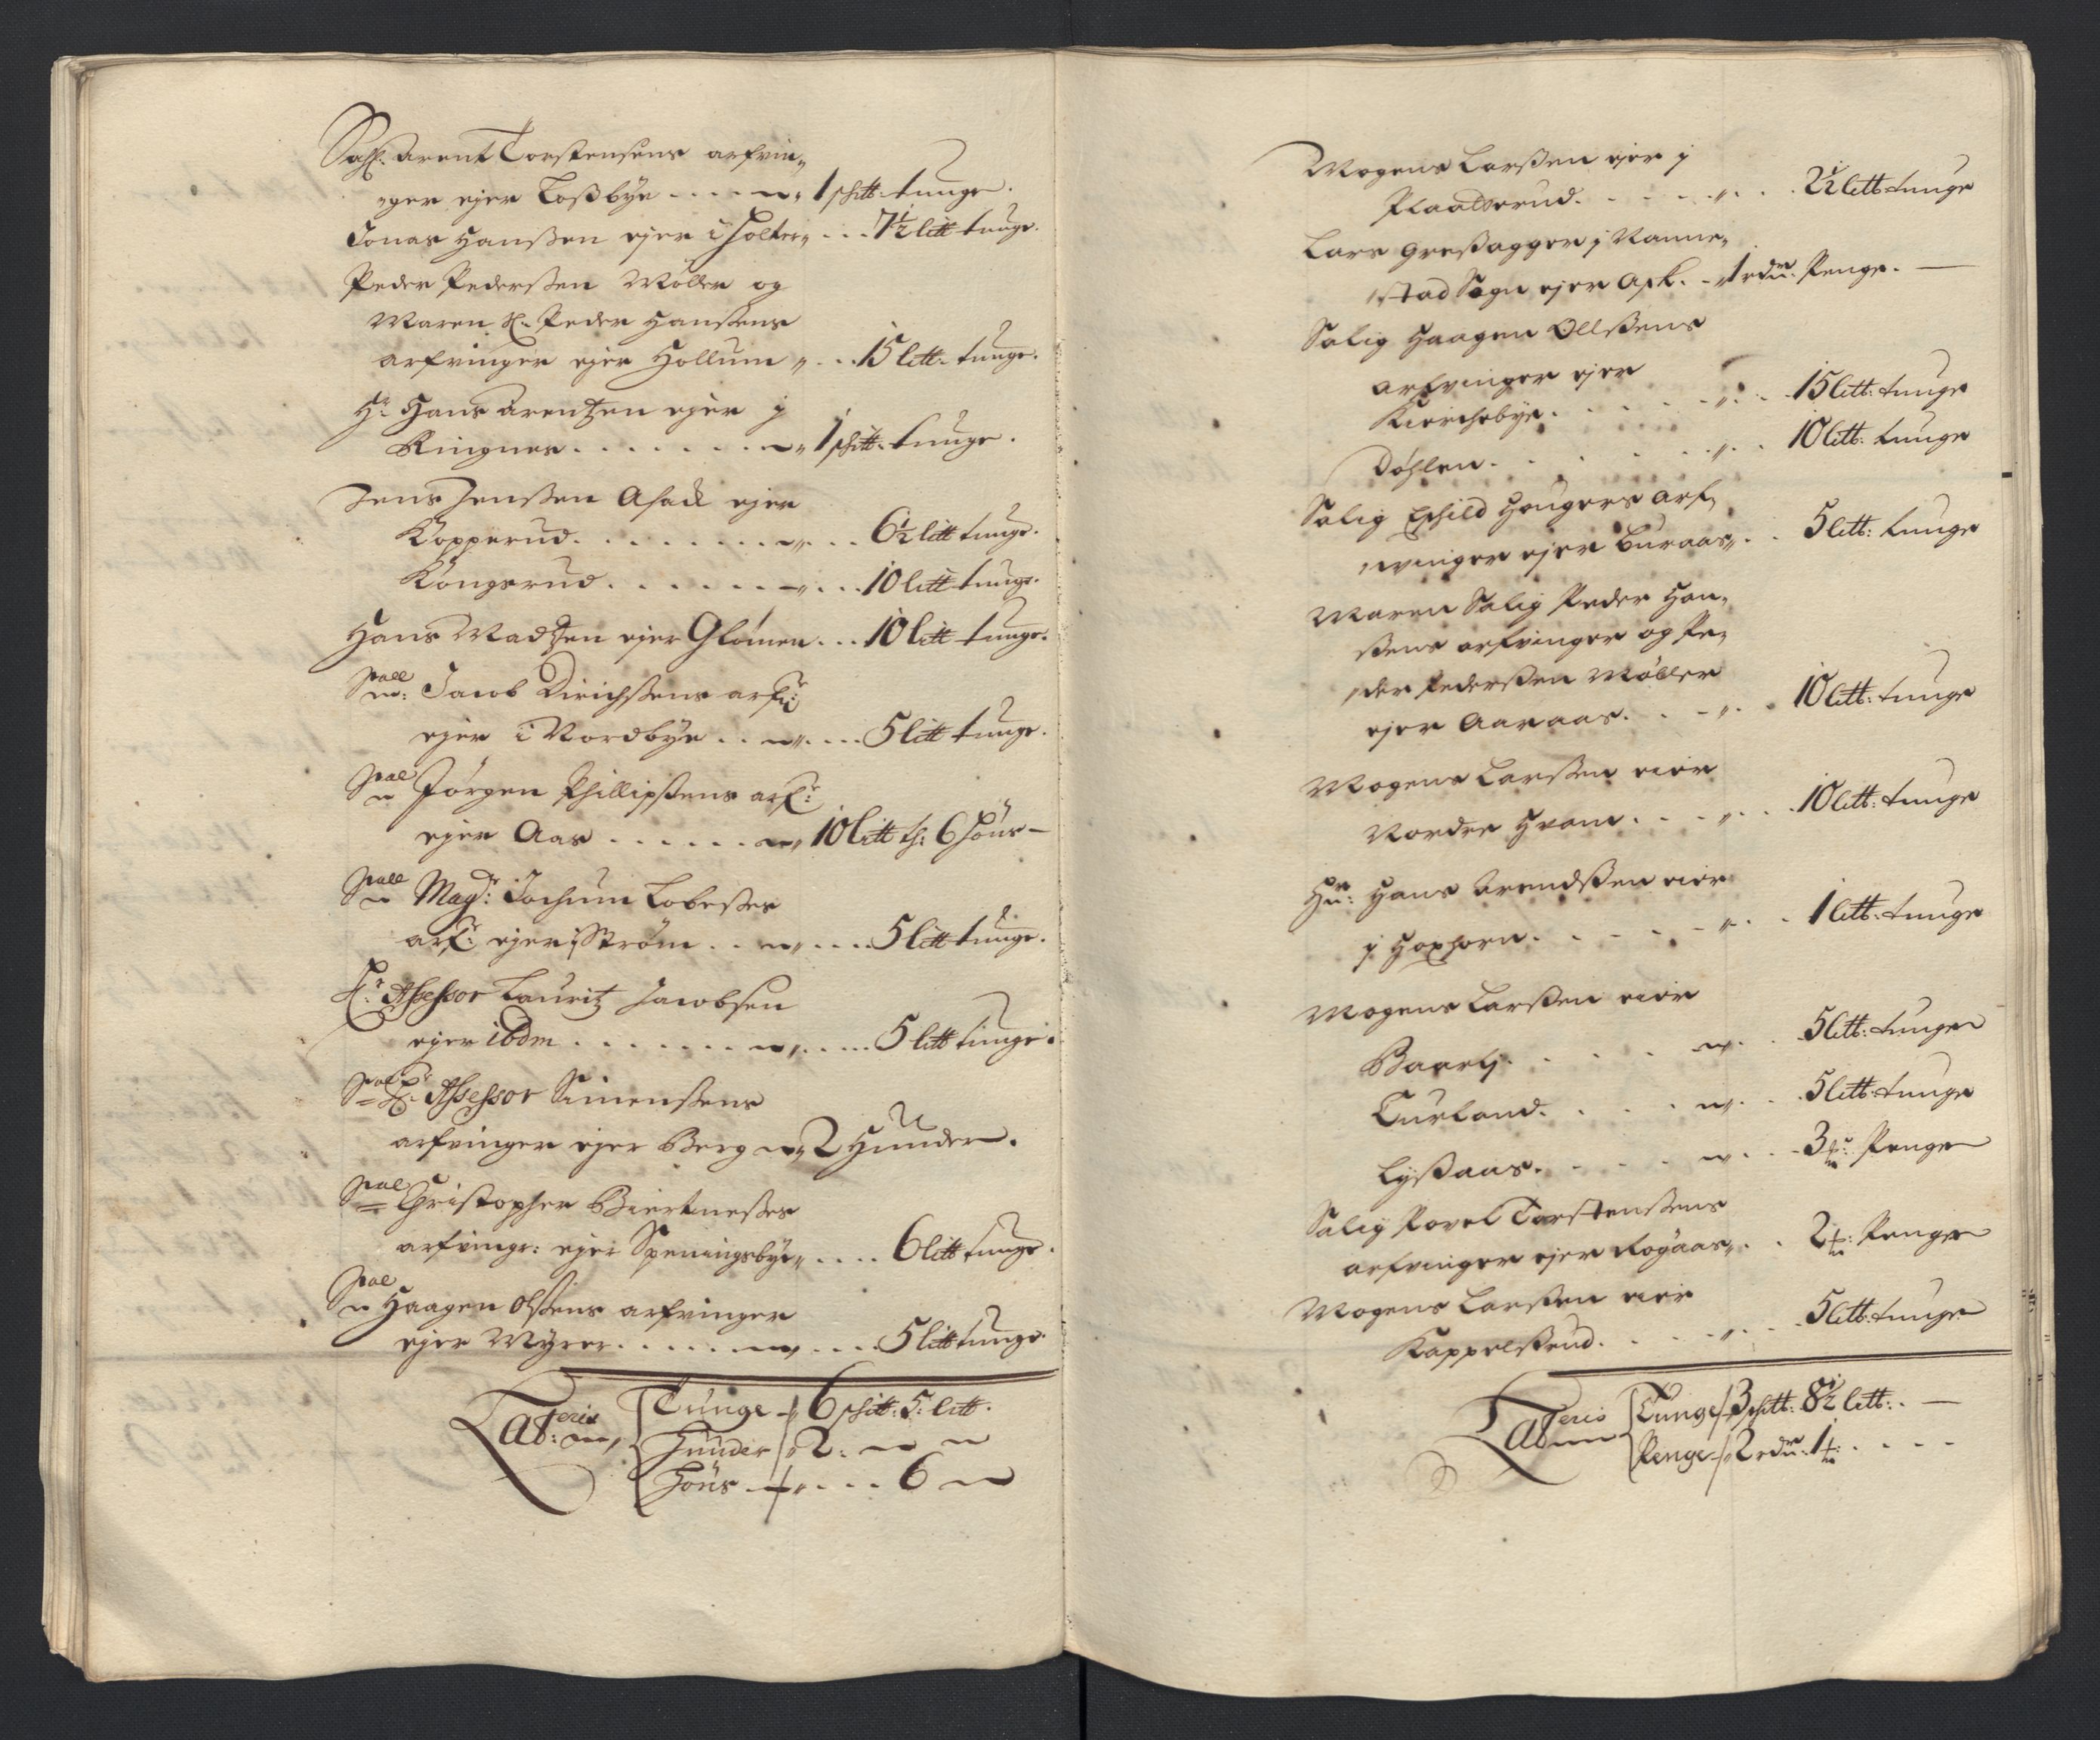 Sahl: Arent Torstensens arfvin„
„ger ejer Loßbye - - - - „ 1 skitt: tunge.
Jonas Hanßen ejer i Holter „ . . 7½ litt tunge.
Peder Pederßen Møller og
Maren Sl. Peder Hanßens
arfvinger ejer Hollum „ . . 15 litt: tunge.
Hr: Hans Arentzen ejer j
Ringnes . . . . . . . „ 1 skitt: tunge.
Jens Jenßen Asack ejer
Kopperud . . . . . . . „ . . 6½ litt tunge.
Kongsrud . . . . . . „ . . . 10 litt tunge.
Hans Madtzen ejer Glomen . . . 10 litt tunge.
Sall: Jacob Dirichßens arf:
ejer i Nordbye . . „ . . . . 5 litt tunge.
Sal Jørgen Phillipßens arf:
ejer Aas . . . . . . „ 10 litt t: 6 Høns —
Sall Magr: Jochum Lobeßes
arf: ejer i Strøm . . „ . . . . 5 litt tunge.
Hr: Assessor Lauritz Jacobsen
ejer ibdm . . . . . . . . „ . . . . . 5 litt tunge.
Sal Hr: Assessor Simenßens
arfvinger ejer Berg „ 2 Huuder.
Sal Christopher Biertneßes
arfvinge: ejer Speningsbye „ . . . . 6 litt tunge.
Sal Haagen Olßens arfvinger
ejer Myrer . . . . . . „ . . . . 5 litt tunge.
Lateris Tunge - „ 6 skitt: 5: litt.
Huuder „ 2: „ „
Høns - „ . . . 6 „
Mogens Larßen ejer j
Plaadserud . . . . . „ . . . 2½ litt: tunge
Lars Greßagger j Ranne„
„stad Sogn ejer Ask . - „ 1 rdr: Penge. —
Salig Haagen Ollßens
arfvinger ejer
Kierchebye . . . . . . „ . . 15 litt: tunge
Døhlen . . . . . . . „ . . 10 litt: tunge
Salig Eskild Haugers arf„
„vinger ejer Buraas „ . . 5 litt: tunge
Maren Salig Peder Han„
ßens arfvinger og Pe„
„der Pederßen Møller
ejer Aaraas . . - „ . . 10 litt: tunge
Mogens Larßen eier
Nordre Hvam . . . „ . . . 10 litt: tunge
Hr: Hans Arendßen eier
j Hoxhorn . . . . . - „ . . 1 litt: tunge
Mogens Larßen eier
Baarly . . . . . „ . . 5 litt: tunge
Turland . . . . . „ . . 5 litt: tunge
Lyßaas . . . . . „ . . . 3 Penge
Salig Povel Torstenßens
arfvinger ejer Rogaas „ . . 2 Penge
Mogens Larßen eier
Kappelßrud . . . . . „ . . . 5 litt: tunge
Lateris Tunge 3 skitt: 8½ litt: . —
Penge - „ 2 rdr: 1 . . . .